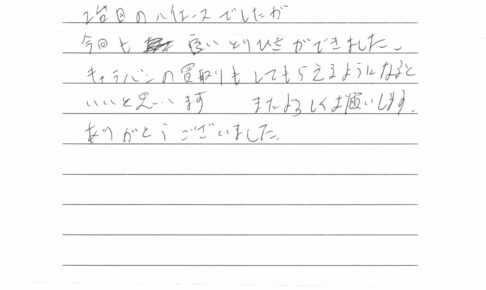 2台目のハイエースでしたが
今回も 良いとりひきができました。
キャラバンの買取りもしてもらえるようになると
いいと思います　またよろしくお願いします。
ありがとうございました。